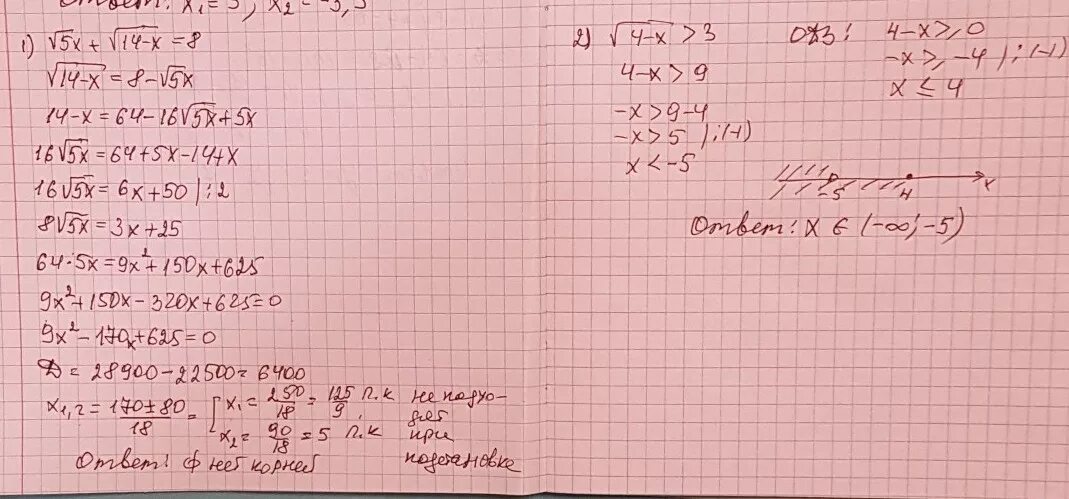 Ответ: x₁=5, x₂=-5,5
1) √5x + √14-x = 8
√14-x = 8-√5x
14-x = 64-16√5x+5x
16√5x = 64+5x-14+x
16√5x = 6x+50 | :2
8√5x = 3x+25
64·5x = 9x²+150x+625
9x²+150x-320x+625=0
9x²-170x+625=0
D = 28900-22500= 6400
x₁,₂ = 170±80/18 = [ x₁= 250/18 = 125/9 п.к не подхо-
дят
x₂= 90/18 = 5 п.к при
подстановке
Ответ: нет корней
2) √4-x > 3
4-x > 9
-x > 9-4
-x > 5 | :(-1)
x < -5
ОДЗ: 4-x ≥ 0
-x ≥ -4 | :(-1)
x ≤ 4
-5 4 x
Ответ: x ∈ (-∞; -5)